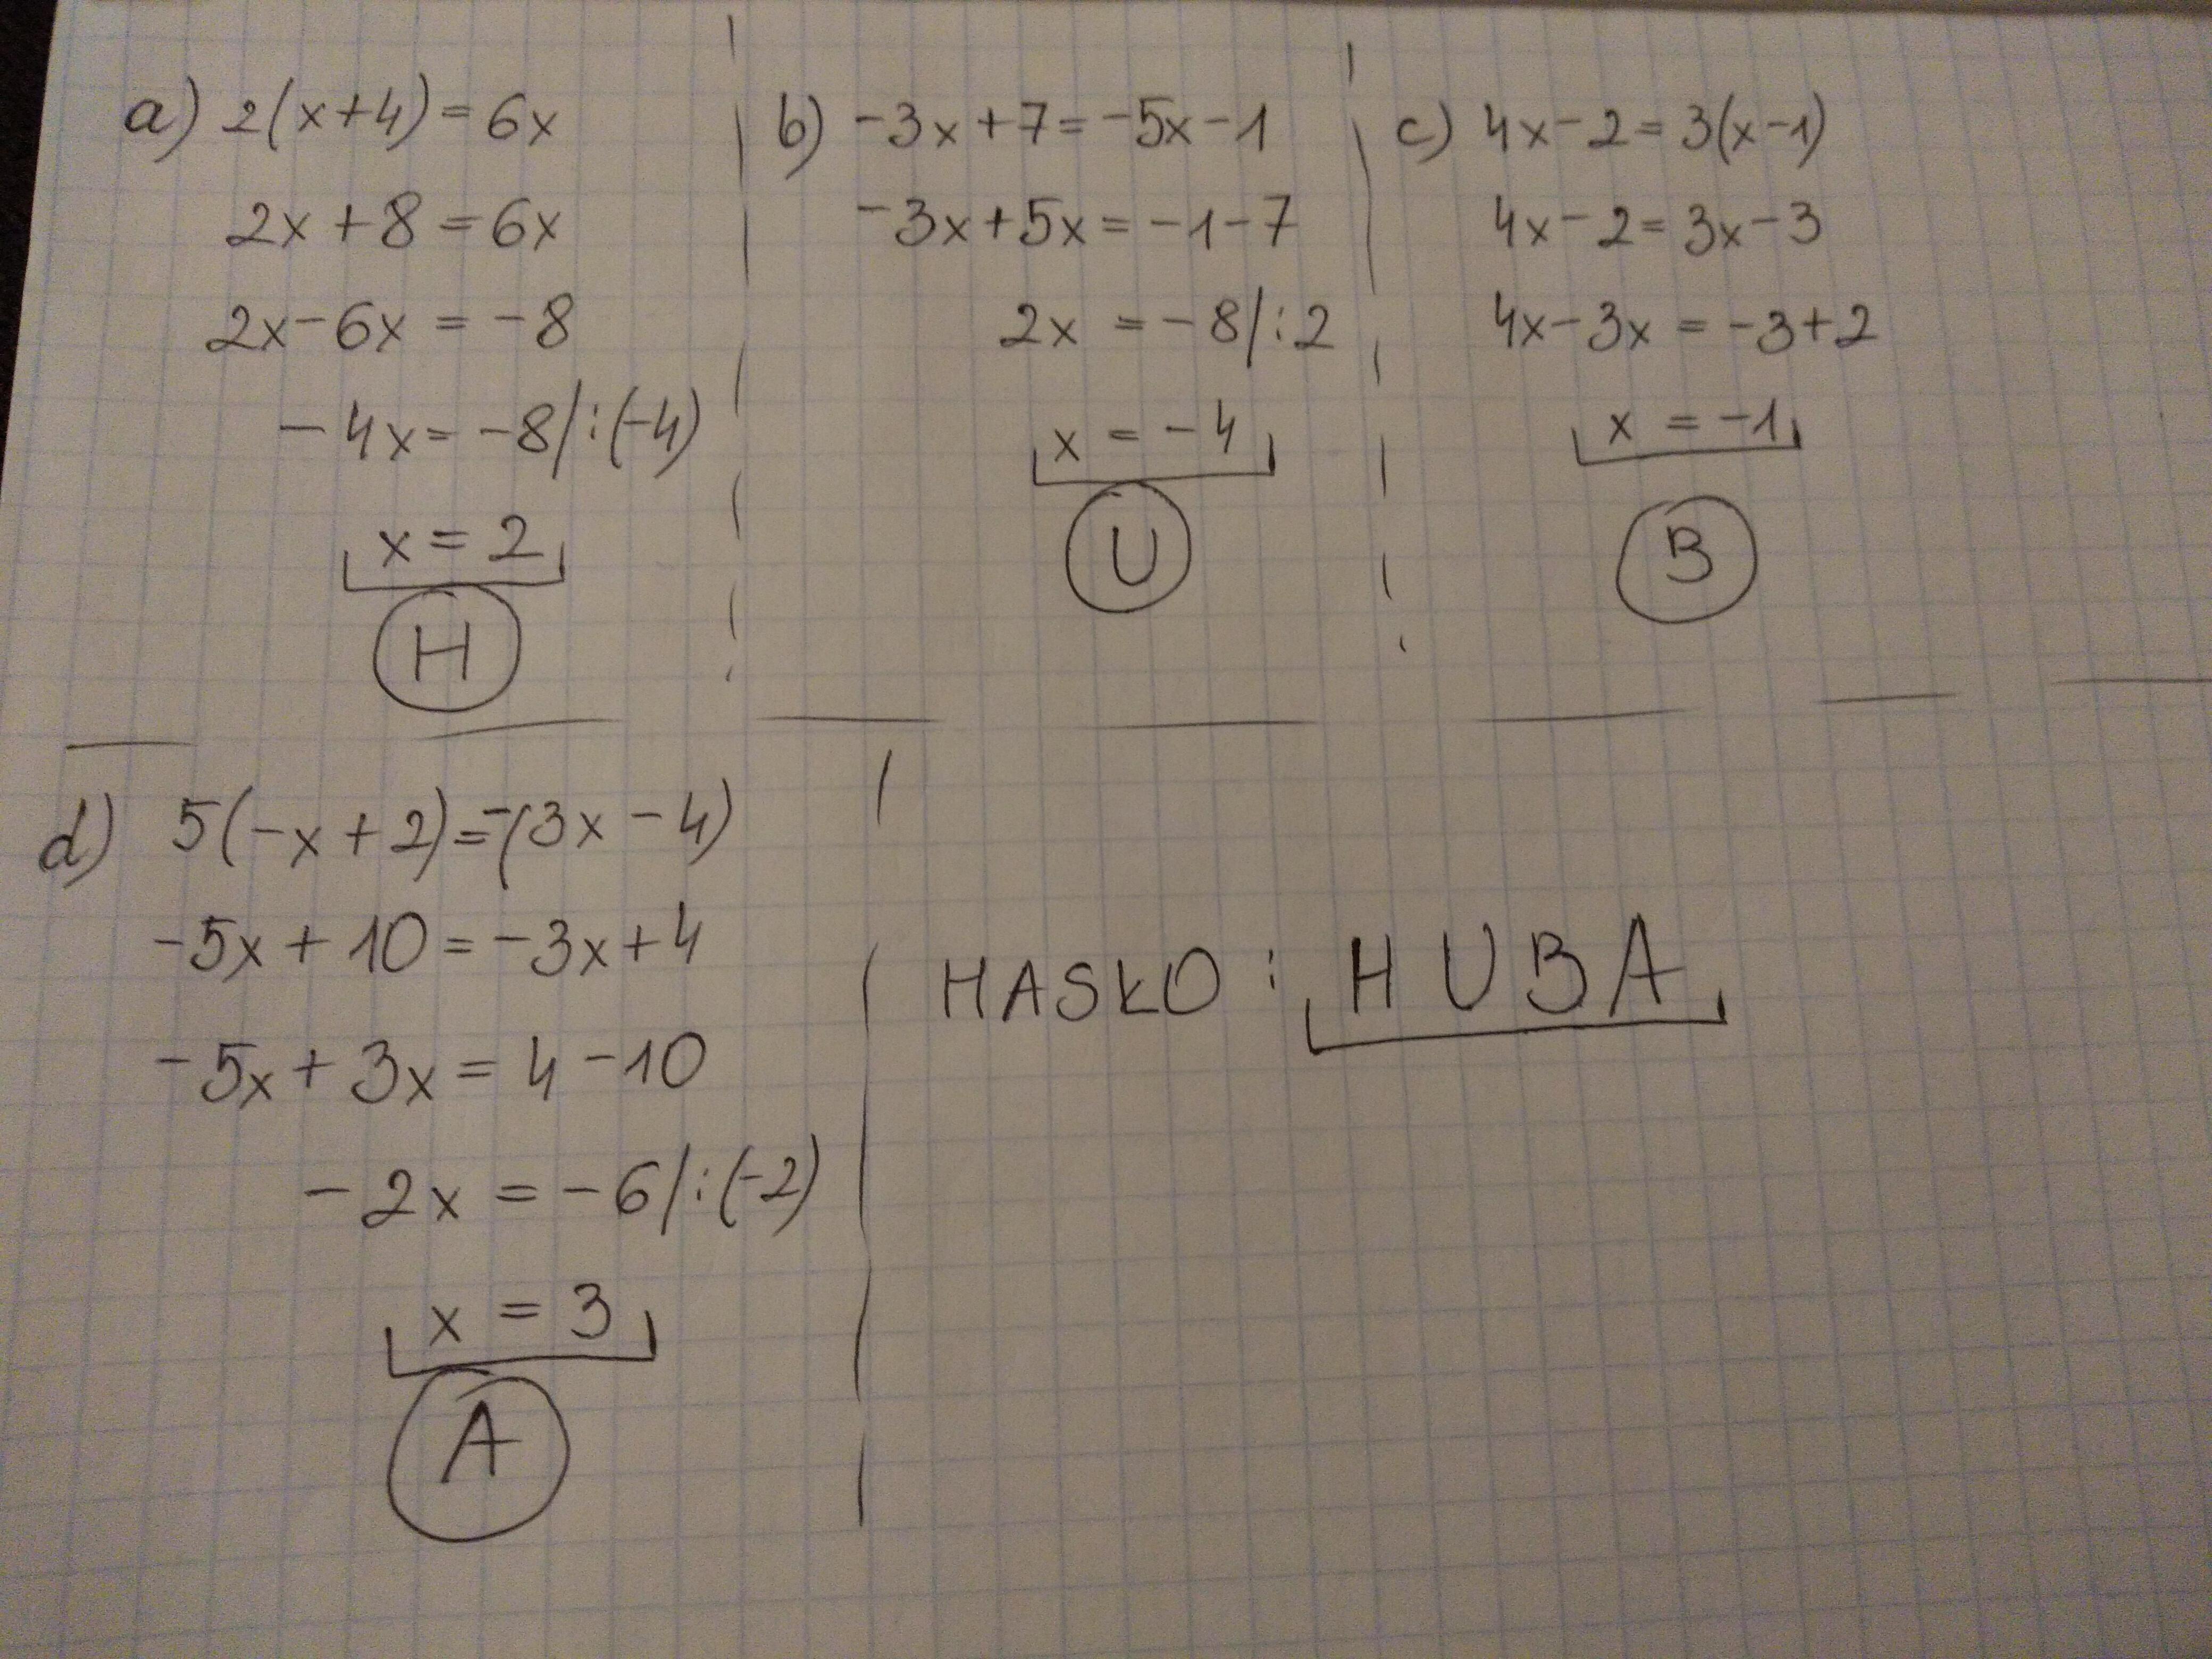 a) 2(x+4)=6x
2x+8=6x
2x-6x=-8
-4x=-8/:(-4)
x=2
H
b) -3x+7=-5x-1
-3x+5x=-1-7
2x=-8/:2
x=-4
U
c) 4x-2=3(x-1)
4x-2=3x-3
4x-3x=-3+2
x=-1
B
d) 5(-x+2)=-(3x-4)
-5x+10=-3x+4
-5x+3x=4-10
-2x=-6/:(-2)
x=3
A
HASŁO: HUBA